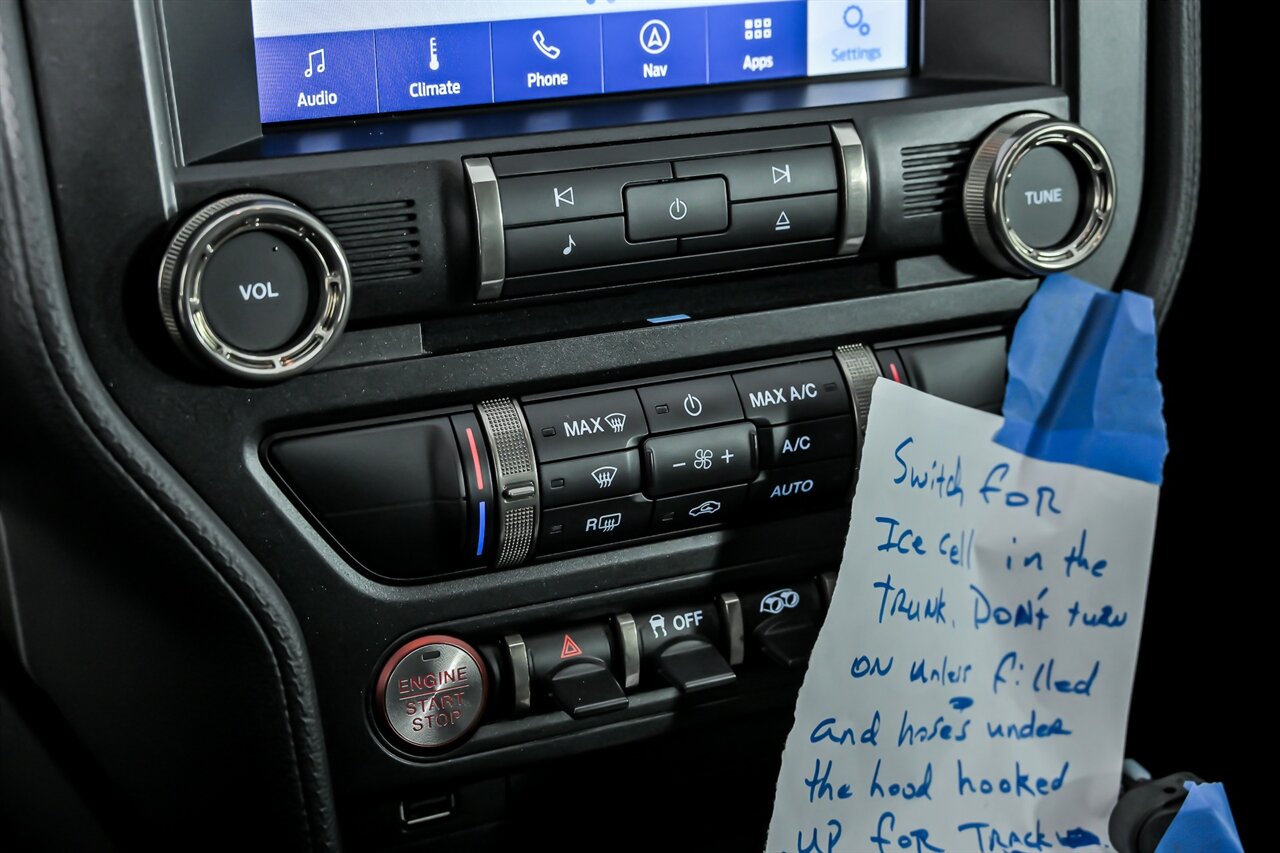 Audio
Climate
Phone
Nav
Apps
Settings
VOL
TUNE
MAX
MAX A/C
- +
A/C
AUTO
R
OFF
ENGINE
START
STOP
Switch FOR
Ice cell in the
TRUNK. DON't turn
ON unless filled
and hoses under
the hood hooked
UP FOR TRACK